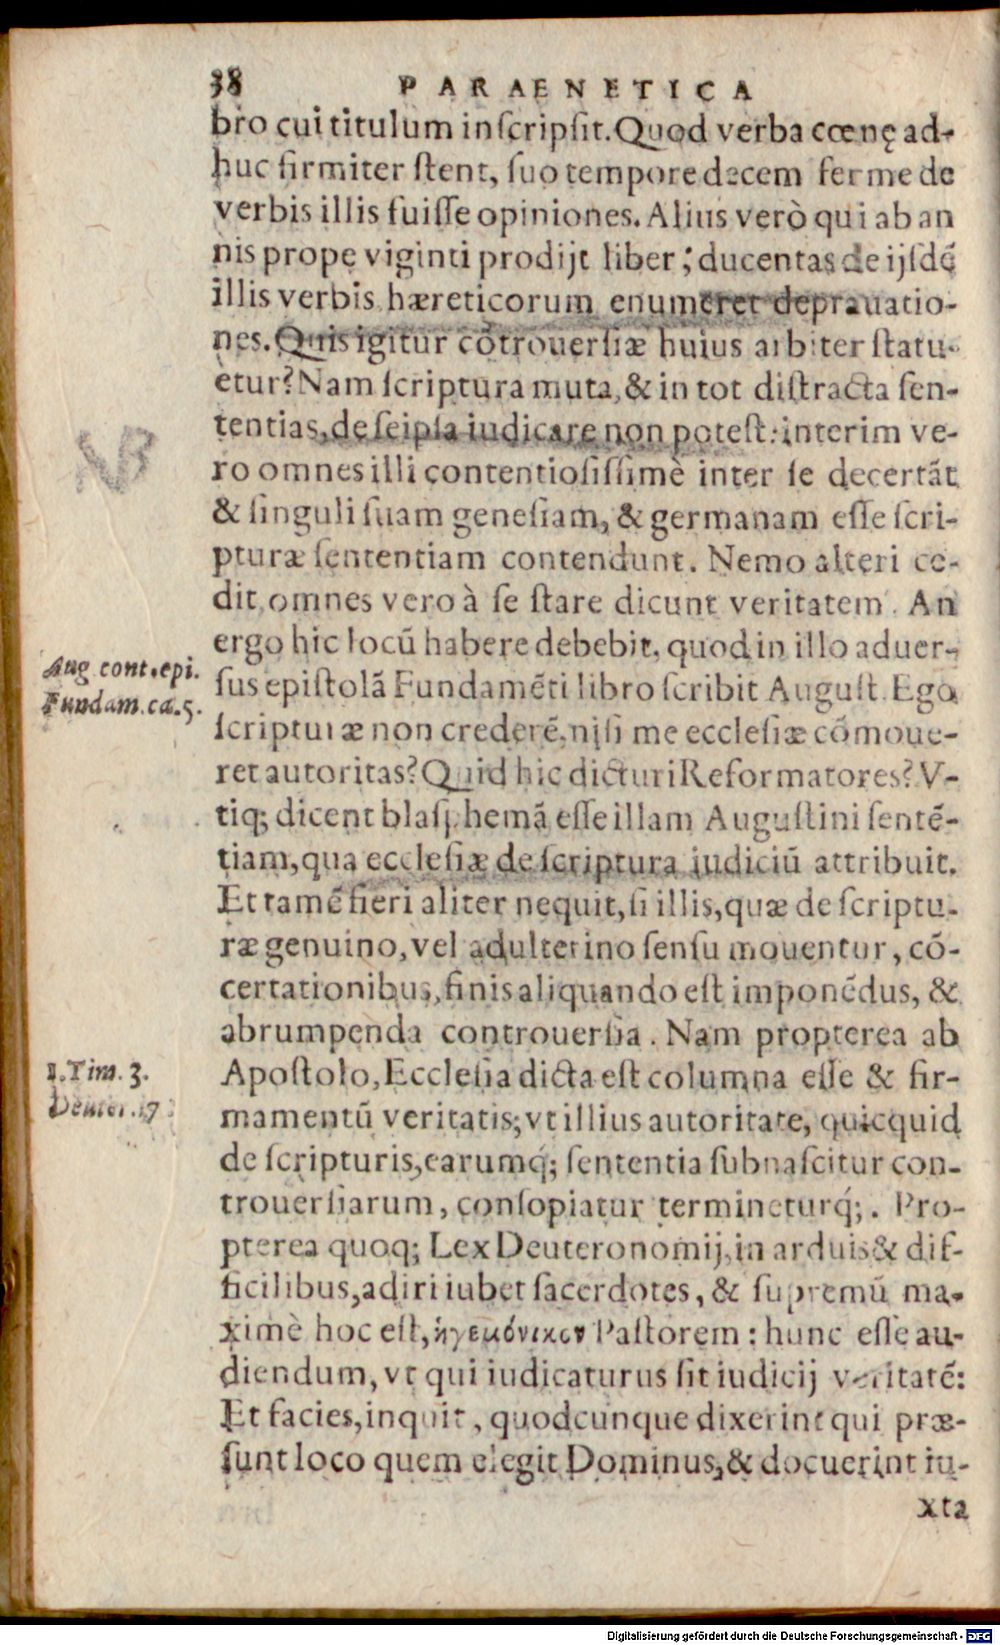 38 PARAENETICA
bro cui titulum inſcripſit. Quod verba cœnę ad-
huc firmiter ſtent, ſuo tempore decem ferme de
verbis illis fuiſſe opiniones. Alius verò qui ab an
nis prope viginti prodijt liber; ducentas de ijſdē
illis verbis hæreticorum enumeret deprauatio-
nes. Quis igitur cōtrouerſiæ huius arbiter ſtatu-
etur? Nam ſcriptura muta, & in tot diſtracta ſen-
tentias, de ſeipſa iudicare non poteſt: interim ve-
ro omnes illi contentioſiſſimè inter ſe decertāt
& ſinguli ſuam geneſiam, & germanam eſſe ſcri-
pturæ ſententiam contendunt. Nemo alteri ce-
dit, omnes vero à ſe ſtare dicunt veritatem. An
ergo hic locū habere debebit, quod in illo aduer-
ſus epiſtolā Fundamēti libro ſcribit Auguſt. Ego
ſcripturæ non crederē, niſi me eccleſiæ cōmoue-
ret autoritas? Quid hic dicturi Reformatores? V-
tiq; dicent blaſphemā eſſe illam Auguſtini ſentē-
tiam, qua eccleſiæ de ſcriptura iudiciū attribuit.
Et tamē fieri aliter nequit, ſi illis, quæ de ſcriptu-
ræ genuino, vel adulterino ſenſu mouentur, cō-
certationibus, finis aliquando eſt imponēdus, &
abrumpenda controuerſia. Nam propterea ab
Apoſtolo, Eccleſia dicta eſt columna eſſe & fir-
mamentū veritatis; vt illius autoritate, quicquid
de ſcripturis, earumq́; ſententia ſubnaſcitur con-
trouerſiarum, conſopiatur termineturq́;. Pro-
pterea quoq; Lex Deuteronomij, in arduis & dif-
ficilibus, adiri iubet ſacerdotes, & ſupremū ma-
ximè hoc eſt, ἡγεμόνικον Paſtorem: hunc eſſe au-
diendum, vt qui iudicaturus ſit iudicij veritatē:
Et facies, inquit, quodcunque dixerint qui præ-
ſunt loco quem elegit Dominus, & docuerint iu-
xta
NB
Aug. cont. epi.
Fundam. ca. 5.
1. Tim. 3.
Deuter. 17
Digitalisierung gefördert durch die Deutsche Forschungsgemeinschaft - DFG